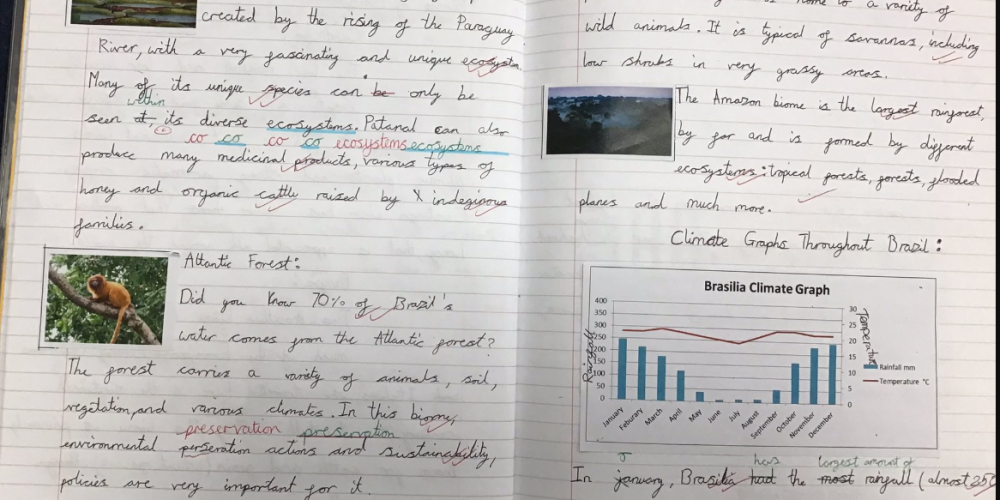 created by the rising of the Paraguay
River, with a very fascinating and unique ecosystem.
Many of its unique species can be only be
within
seen at, its diverse ecosystems. Patanal can also
co co co co ecosystems ecosystems
produce many medicinal products, various types of
honey and organic cattle raised by X indeginous
families.
Atlantic Forest:
Did you know 70% of Brazil's
water comes from the Atlantic forest?
The forest carries a variety of animals, soil,
vegetation, and various climates. In this biome,
preservation preservation
perseration actions and sustainability,
environmental
policies are very important for it.
to a variety of
wild animals. It is typical of savannas, including
low shrubs in very grassy areas.
The Amazon biome is the largest rainforest,
by far and is formed by different
ecosystems: tropical forests, forests, flooded
planes and much more.
Climate Graphs Throughout Brazil:
Brasilia Climate Graph
Rainfall
400
350
300
250
200
150
100
50
0
January
Feburary
March
April
May
June
July
August
September
October
November
December
30
25
20
15
10
5
0
Temperature
Rainfall mm
Temperature °C
J has largest amount of
In january, Brasilia had the most rainfall (almost 250